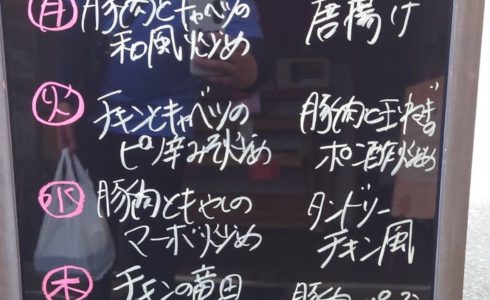 月 豚肉とキャベツの 唐揚げ
和風炒め
火 チキンとキャベツの 豚肉と玉ねぎ
ピリ辛みそ炒め ポン酢炒め
水 豚肉ともやしの タンドリー
マーボ炒め チキン風
木 チキンの竜田 豚肉